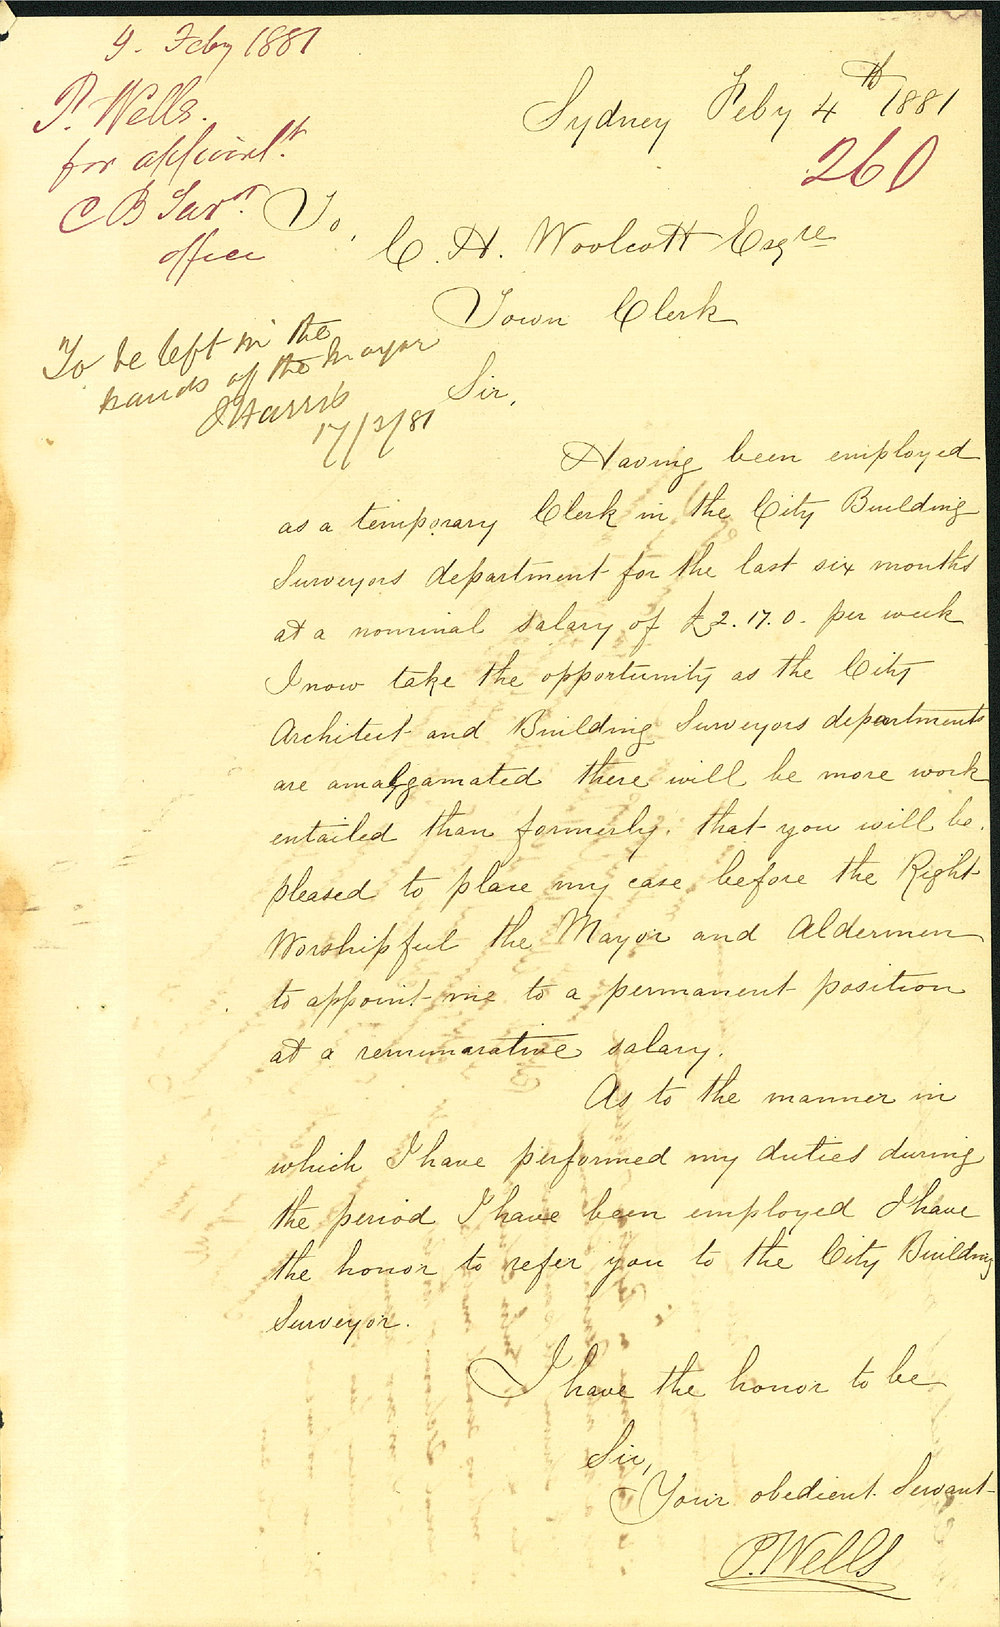 9. Feby 1881
P. Wells.
for appoint.t
C B Sur.r
office
Sydney Feby 4th 1881
260
To,
C. H. Woolcott Esqre
Town Clerk
To be left in the
hands of the Mayor
J Harris
17/2/81
Sir,
Having been employed
as a temporary Clerk in the City Building
Surveyors department for the last six months
at a nominal salary of £2. 17. 0. per week
I now take the opportunity as the City
Architect and Building Surveyors departments
are amalgamated there will be more work
entailed than formerly. that you will be.
pleased to place my case before the Right
Worshipful the Mayor and Aldermen
to appoint me to a permanent position
at a remunarative salary.
As to the manner in
which I have performed my duties during
the period I have been employed I have
the honor to refer you to the City Building
Surveyor.
I have the honor to be
Sir,
Your obedient Servant
P. Wells